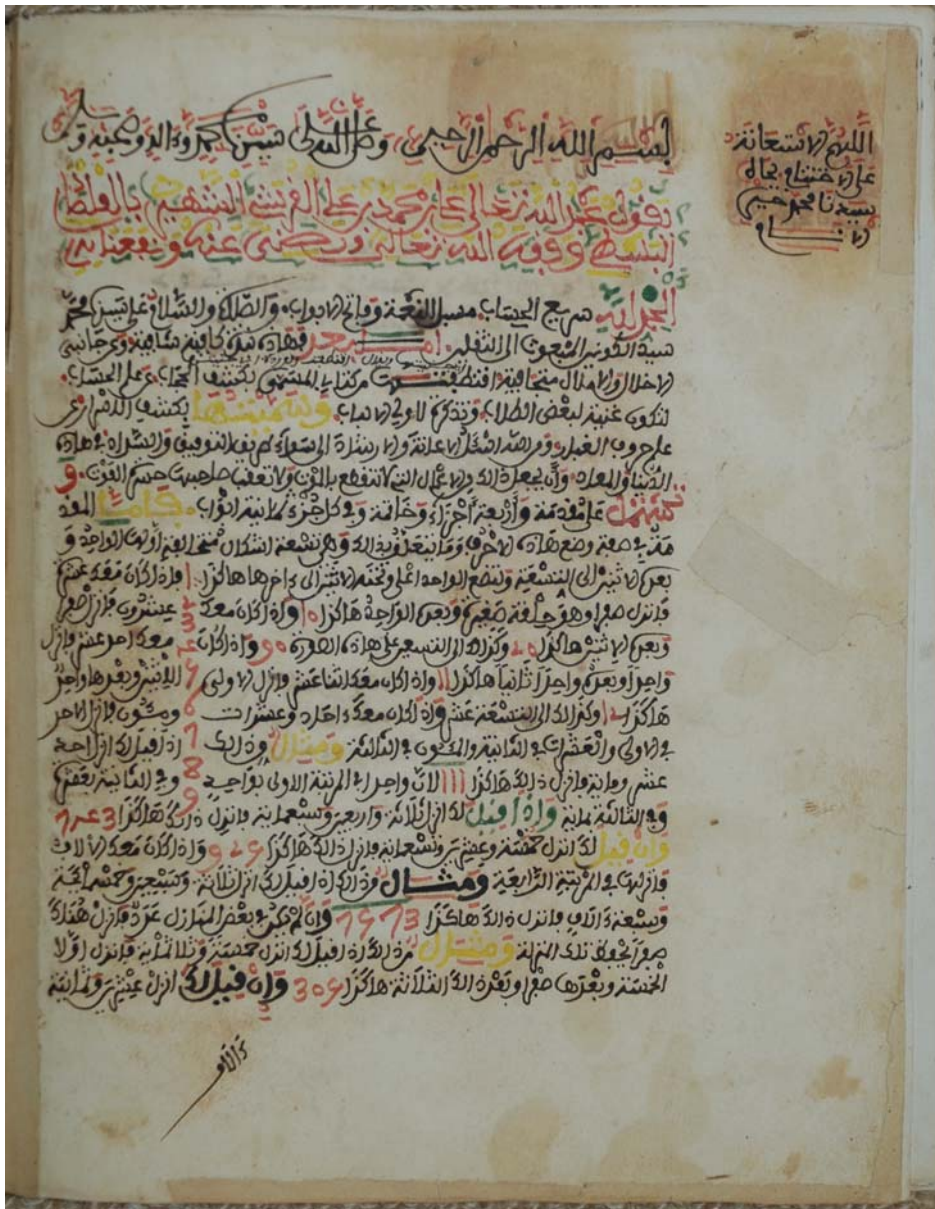 بسم الله الرحمن الرحيم وصلى الله على سيدنا محمد وءاله وصحبه وسلم
يقول عبد الله تعالى علي بن محمد بن علي القرشي الشهير بالقلصادي
البسطي وفقه الله تعالى ورضي عنه ونفعنا به
الحمد لله سريع الحساب مسبل النعمة وفاتح الابواب والصلاة والسلام على سيدنا محمد
سيد الكونين المبعوث الى الثقلين اما بعد فهاذه نبذة كافية شافية وعن جانبي
الاخلال والاملال متجافية اقتطفتها من كتابي المسمى بكشف الجلباب عن علم الحساب
لتكون غنية لبعض الطلاب وتذكرة لاولي الالباب وسميتها بكشف الاسرار عن
علم حروف الغبار ومن الله اسئل الاعانة والارشاد الى سواء طريق التوفيق والسداد في هاذه
الدنيا والمعاد وأن يجعل ذالك من الاعمال التي لا تنقطع بالموت ولا تعقب صاحبها حسرة الفوت و
تشتمل على مقدمة وأربعة أجزاء وخاتمة وفي كل جزء ثمانية ابواب فاما المقد
مة في صفة وضع هاذه الاحرف وما يتعلق بذالك وهي تسعة اشكال منها الفم أولها الواحد و
بعده الاثنين الى التسعة ولتضع الواحد اعلى وتحته الاثنين الى ءاخرها هاكذا 1 فاذا كان معك عشرة
فانزل صفرا وهو حلقة صغيرة وبعده الواحد هاكذا 10 واذا كان معك 2 عشرون فانزل صفرا
وبعده الاثنين هاكذا 20 وكذالك الى التسعين على هاذه الصورة 90 واذا كان 4 معك احد عشر فانزل
واحدا وبعده واحدا ثانيا هاكذا 11 واذا كان معك اثنا عشر فانزل الاولى 5 الاثنين وبعدها واحدا
هاكذا 12 وكذالك الى التسعة عشر واذا كان معك ءاحاد وعشرات 6 ومئون فانزل الاحاد
في الاولى والعشرات في الثانية والمئون في الثالثة ومثال ذالك 7 اذا قيل لك انزل احد
عشر ومائة فانزل ذالك هاكذا 111 لان واحدا في المرتبة الاولى بواحد 8 وفي الثانية بعشرة
وفي الثالثة بمائة واذا قيل لك انزل ثلاثة واربعين وتسعمائة فانزل ذالك هاكذا
وان قيل لك انزل خمسة وعشرين وتسعمائة فانزل ذالك هاكذا 925 واذا كان معك الالاف
فانزلها في المرتبة الرابعة ومثال ذالك اذا قيل لك انزل ثلاثة وسبعين وخمسمائة
وتسعة ءالاف فانزل ذالك هاكذا وان لم يكن في بعض المنازل عدد فانزل هنالك
صفرا يحفظ تلك المنزلة ومثال من ذالك اذا قيل لك انزل خمسة وثلاثمائة فانزل اولا
الخمسة وبعدها صفرا وبعد ذالك الثلاثة هاكذا 305 وان قيل لك انزل عشرين وثمانية
ءالاف
اللهم الاستعانة
سيدنا محمد